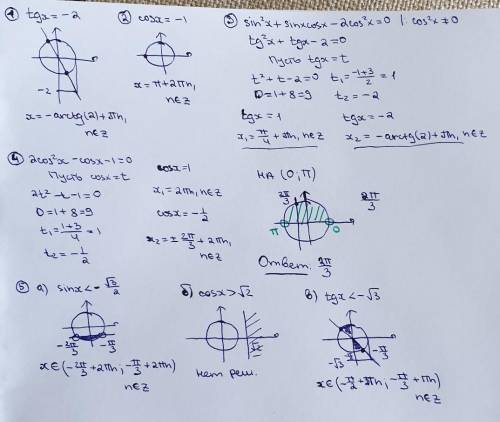 ① tgx = -2
-2
x = -arctg(2)+πn,
n∈Z
② cosx = -1
x = π+2πn,
n∈Z
③ sin²x + sinxcosx - 2cos²x = 0 |: cos²x ≠ 0
tg²x + tgx - 2 = 0
Пусть tgx = t
t² + t - 2 = 0 t₁ = (-1+3)/2 = 1
D = 1+8 = 9 t₂ = -2
tgx = 1 tgx = -2
x₁ = π/4 + πn, n∈Z x₂ = -arctg(2)+πn, n∈Z
④ 2cos²x - cosx - 1 = 0
Пусть cosx = t
2t² - t - 1 = 0
D = 1+8 = 9
t₁ = (1+3)/4 = 1
t₂ = -1/2
cosx = 1
x₁ = 2πn, n∈Z
cosx = -1/2
x₂ = ± 2π/3 + 2πn,
n∈Z
НА (0; π)
2π/3
π 0
2π/3
Ответ: 2π/3
⑤ а) sinx < -√3/2
-2π/3 -π/3
x∈(-2π/3 + 2πn; -π/3 + 2πn)
n∈Z
б) cosx > √2
√2
нет реш.
в) tgx < -√3
-√3 -π/2 -π/3
x∈(-π/2 + πn; -π/3 + πn)
n∈Z